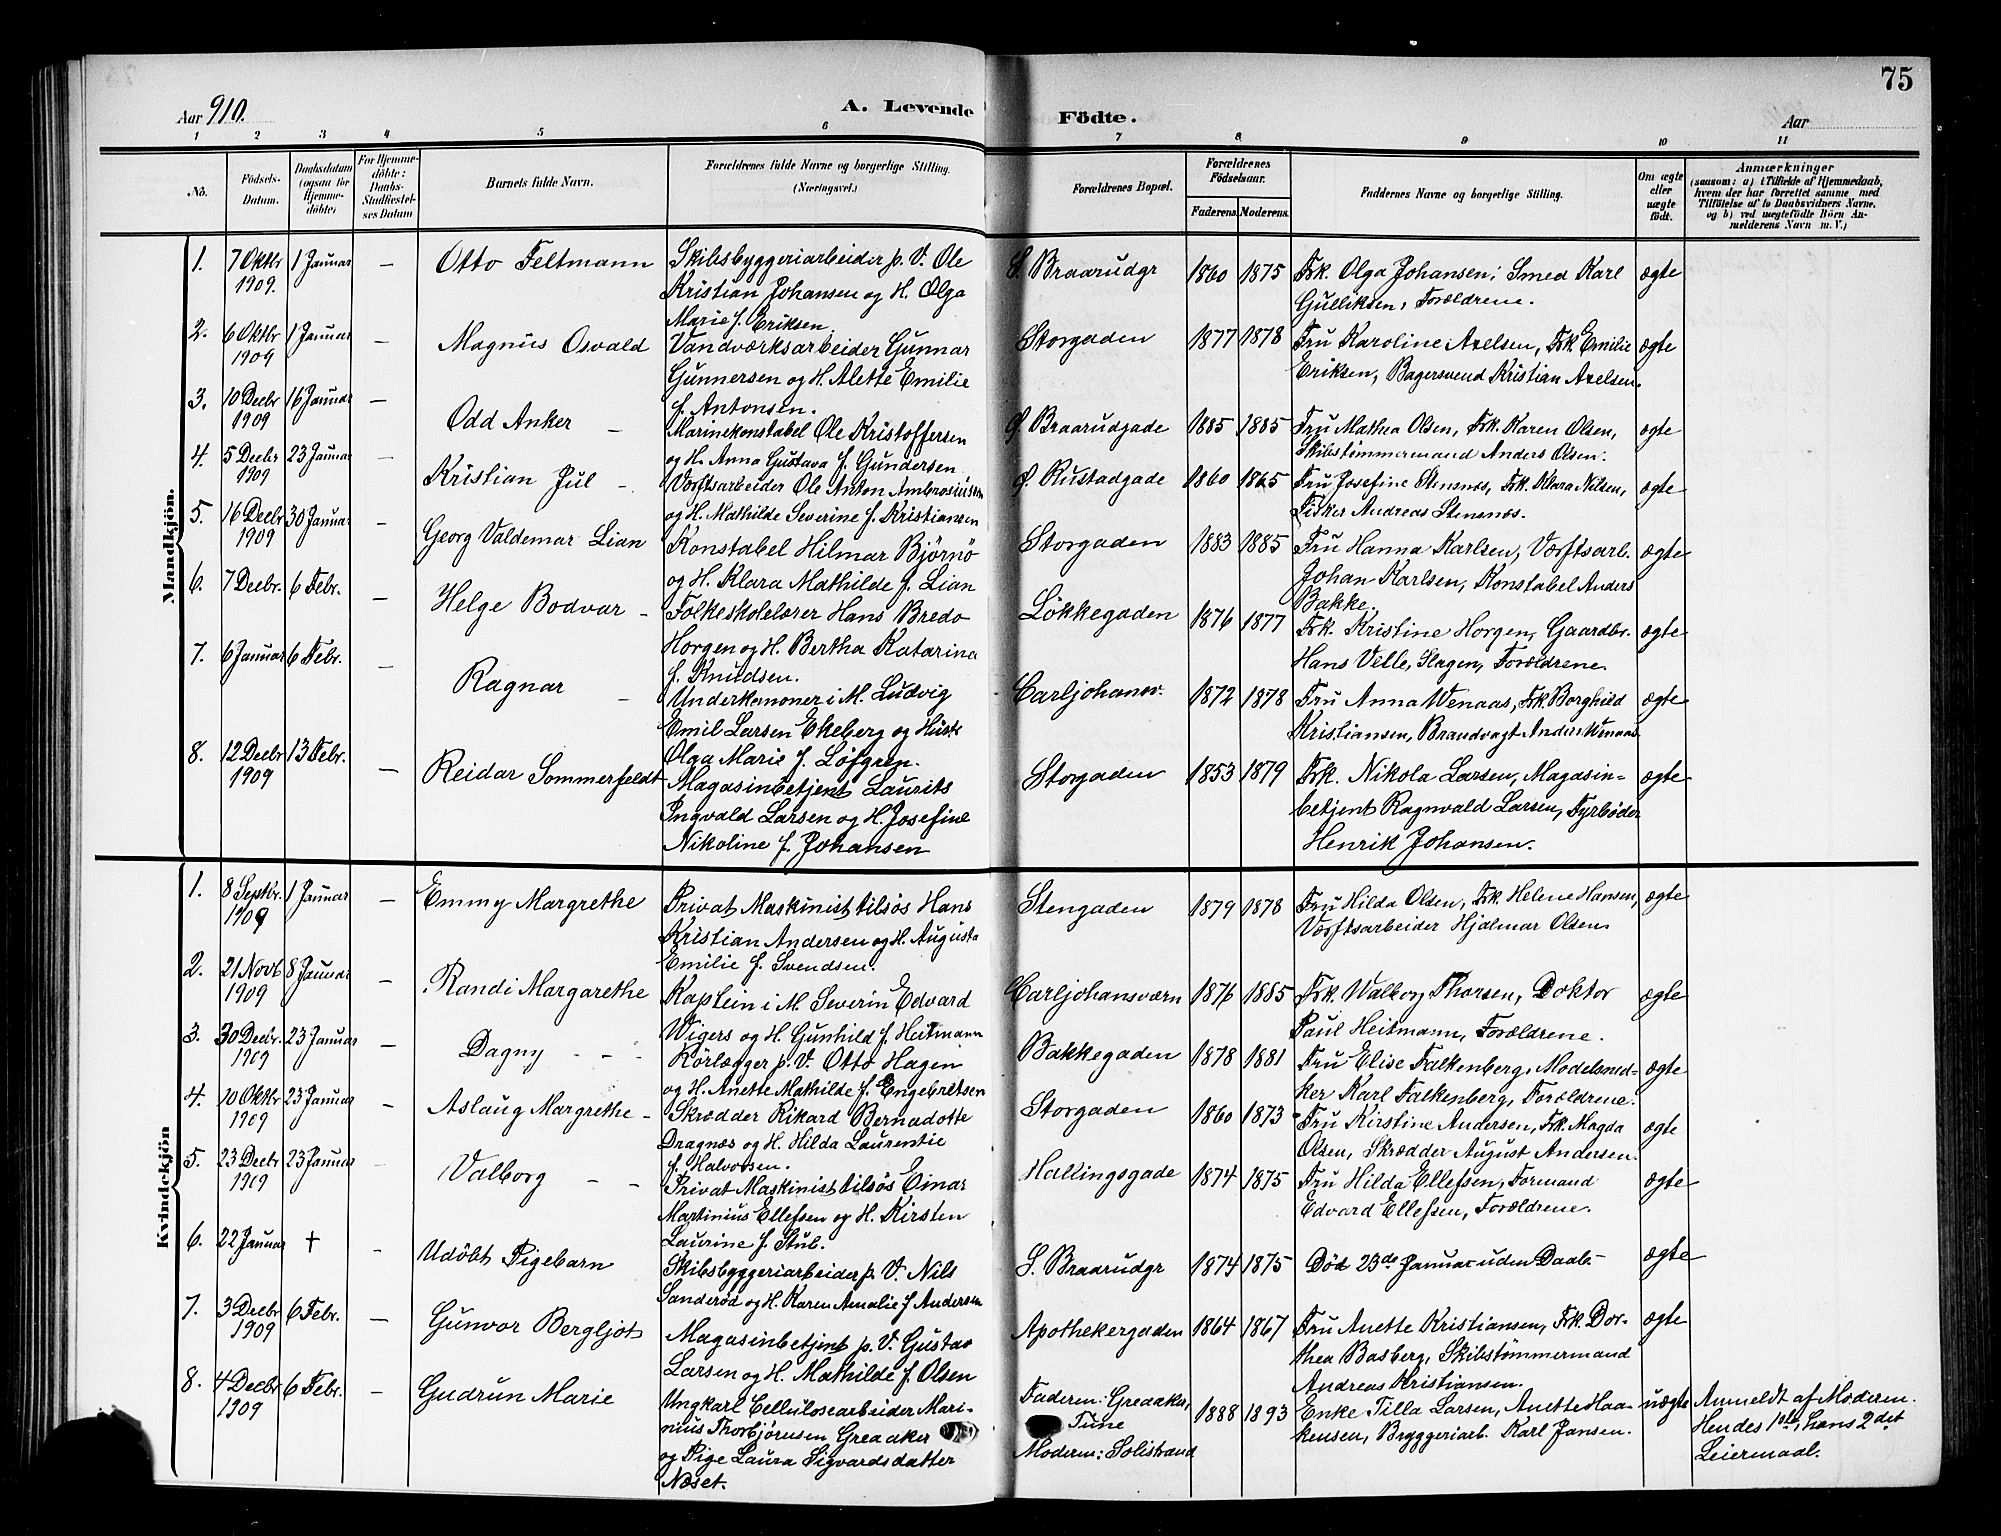 75
Aar 910.
A. Levende Födte.
Aar
1 2 3 4 5 6 7 8 9 10 11
No.
Födsels-
Datum.
Daabsdatum
(ogsaa för
Hjemme-
döbte)
For Hjemme-
döbte:
Daabs-
Stadfæstel-
ses Datum
Barnets fulde Navn.
Forældrenes fulde Navne og borgerlige Stilling.
(Næringsvei.)
Forældrenes Bopæl.
Forældrenes
Födselsaar.
Faderens. Moderens.
Faddernes Navne og borgerlige Stilling.
Om ægte
eller
uægte
født.
Anmærkninger
(saasom: a) i Tilfælde af Hjemmedaab,
hvem der har forrettet samme med
Tilföielse af to Daabsvidners Navne.
og b) ved uægtefödte Börn An-
melderens Navn m. V.)
Mandkjön.
1. 7 Oktbr 1909. 1 Januar – Otto Feltmann
Skibsbyggeriarbeider p. V. Ole
Kristian Johansen og H. Olga
Marie f. Eriksen.
S. Braarudgr 1860 1875
Frk. Olga Johansen; Smed Karl
Gulliksen, Forældrene.
ægte
2. 6 Oktbr 1909 1 Januar – Magnus Osvald
Vandværksarbeider Gunnar
Gunnersen og H. Alette Emilie
f. Antonsen.
Storgaden 1877 1878
Fru Karoline Axelsen, Frk. Emilie
Eriksen, Bagersvend Kristian Axelsen.
ægte
3. 10 Decbr 1909 16 Januar – Odd Anker –
Marinekonstabel Ole Kristoffersen
og H. Anna Gustava f. Gundersen
Ø Braarudgade 1885 1885
Fru Mathea Olsen, Frk. Karen Olsen,
Skibstømmermand Anders Olsen.
ægte
4. 5 Decbr 1909 23 Januar – Kristian Jul –
Værftsarbeider Ole Anton Ambrosiussen
og H. Mathilde Severine f. Kristiansen
Ø. Rustadgade 1860 1865
Fru Josefine Stensnæs, Frk. Klara Nilsen,
Fisker Andreas Stensnæs.
ægte
5. 16 Decbr 1909 30 Januar – Georg Valdemar Lian
Konstabel Hilmar Bjørnø
og H. Klara Mathilde f. Lian
Storgaden 1883 1885
Fru Hanna Karlsen, Værftsarb.
Johan Karlsen, Konstabel Anders
Bakke.
ægte
6. 7 Decbr. 6 Febr. – Helge Bodvar –
Folkeskolelærer Hans Bredo
Horgen og H. Bertha Katarina
f. Knudsen.
Løkkegaden 1876 1877
Frk. Kristine Horgen, Gaardbr.
Hans Velle, Slagen, Forældrene.
ægte
7. 6 Januar 6 Febr. – Ragnar –
Underkanoner i M. Ludvig
Emil Larsen Ekeberg og Hust.
Olga Marie f. Løfgren.
Carljohansv. 1872 1878
Fru Anna Wenaas, Frk. Borghild
Kristiansen, Brandvagt Anders Wenaas
ægte
8. 12 Decbr 1909 13 Febr. – Reidar Sommerfeldt
Magasinbetjent Laurits
Ingvald Larsen og H. Josefine
Nikoline f. Johansen
Storgaden 1853 1879
Frk. Nikola Larsen, Magasin-
betjent Ragnvald Larsen, Fyrbøder
Henrik Johansen.
ægte
Kvindekjön
1. 8 Septbr. 1909 1 Januar – Emmy Margrethe
Privat Maskinist tilsøs Hans
Kristian Andersen og H. Augusta
Emilie f. Svendsen.
Stengaden 1879 1878
Fru Hilda Olsen, Frk. Helene Hansen,
Værftsarbeider Hjalmar Olsen
ægte
2. 21 Novb 1909 8 Januar – Randi Margarethe
Kaptein i M. Severin Edvard
Wigers og H. Gunhild f. Heitmann
Carljohansværn 1876 1885
Frk. Walborg Thorsen, Doktor
Paul Heitmann, Forældrene.
ægte
3. 30 Decbr. 1909 23 Januar – Dagny – –
Rørlægger p. V. Otto Hagen
og H. Anette Mathilde f. Engebretsen
Bakkegaden 1878 1881
Fru Elise Falkenberg, Modelsned-
ker Karl Falkenberg, Forældrene.
ægte
4. 10 Oktbr 1909 23 Januar – Aslaug Margrethe –
Skrædder Rikard Bernadotte
Dragnæs og H. Hilda Laurentie
f. Halvorsen.
Storgaden 1860 1873
Fru Kirstine Andersen, Frk. Magda
Olsen, Skrædder August Andersen.
ægte
5. 23 Decbr 1909 23 Januar – Valborg – –
Privat Maskinist tilsøs Einar
Martinius Ellefsen og H. Kirsten
Laurine f. Stub.
Hallingsgade 1874 1875
Fru Hilda Ellefsen, Formand
Edvard Ellefsen, Forældrene.
ægte
6. 22 Januar † – Udøbt Pigebarn
Skibsbyggeriarbeider p. V. Nils
Sanderød og H. Karen Amalie f. Andersen
S. Braarudgr 1874 1875
Død 23de Januar uden Daab.
ægte
7. 3 Decbr 1909 6 Febr. – Gunvor Bergljot
Magasinbetjent p. V. Gustav
Larsen og H. Mathilde f. Olsen
Apothekergaden 1864 1867
Fru Anette Kristiansen, Frk. Dor-
thea Basberg, Skibstømmermand
Andreas Kristiansen.
ægte
8. 4 Decbr 1909 6 Febr. – Gudrun Marie
Ungkarl Cellulosearbeider Mari-
nius Thorbjørnsen Greaaker
og Pige Laura Sigvardsdatter
Næset.
Faderen: Greaaker,
Tune
Moderen: Solistrand
1888 1893
Enke Tilla Larsen, Anette Haa-
kensen, Bryggeriarb. Karl Jansen.
uægte
Anmeldt af Moderen.
Hendes 1ste, hans 2det
Leiermaal.